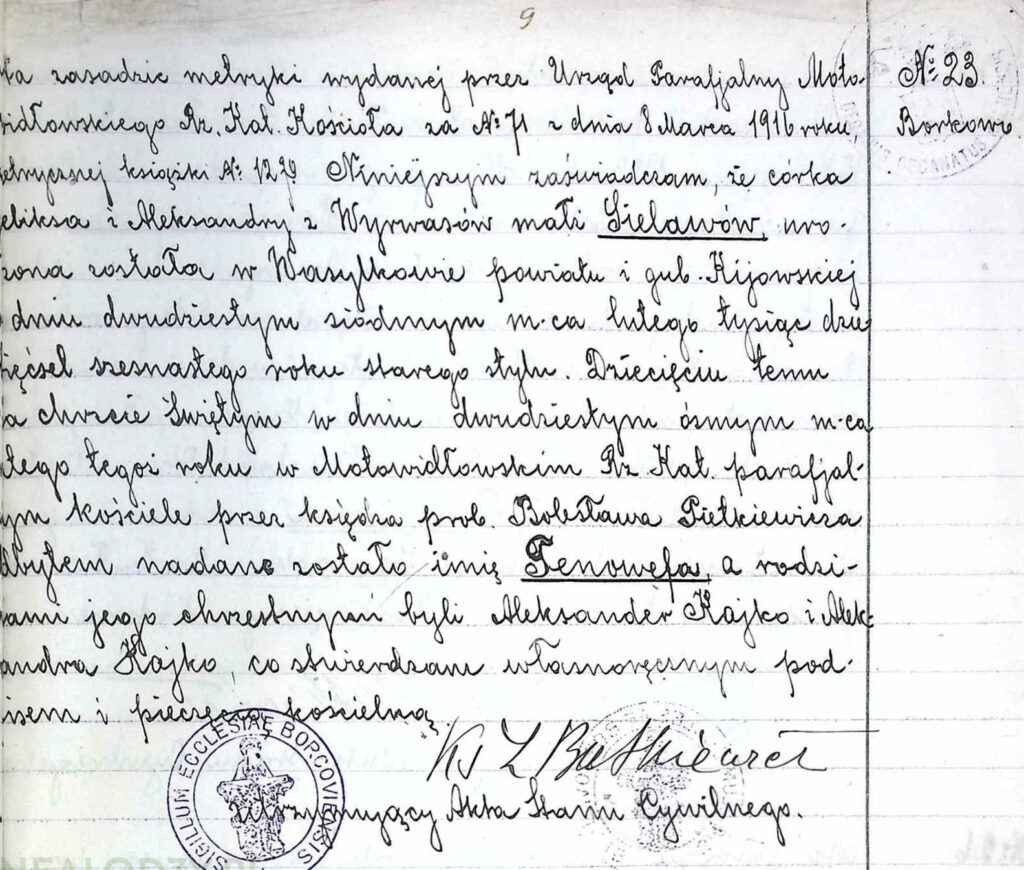 9
Na zasadzie metryki wydanej przez Urząd Parafjalny Moto-
widłowskiego Rz. Kat. Kościoła za № 71 z dnia 8 Marca 1916 roku,
etrycznej książki № 1279 Niniejszym zaświadczam, że córka
eliksa i Aleksandry z Wyrwasów małż Sielawów, uro-
zona została w Wasylkowie powiatu i gub. Kijowskiej
dniu dwudziestym siódmym m-ca lutego tysiąc dzie-
więćset szesnastego roku starego stylu. Dziecięciu temu
a chrzcie Świętym w dniu dwudziestym ósmym m-ca
utego tegoż roku w Motowidłowskim Rz. Kat. parafjal-
ym kościele przez księdza prob. Bolesława Pietkiewicza
dbytem nadane zostało imię Genowefa, a rodzi-
ami jego chrzestnymi byli Aleksander Kajko i Alek-
andra Kajko, co stwierdzam własnoręcznym pod-
isem i pieczęcią kościelną.
Ks Z Butkiewicz
utrzymujący Akta Stanu Cywilnego.
№ 23.
Borkowo
SIGILLUM ECCLESIAE BORCOVIENSIS
DECANATUS